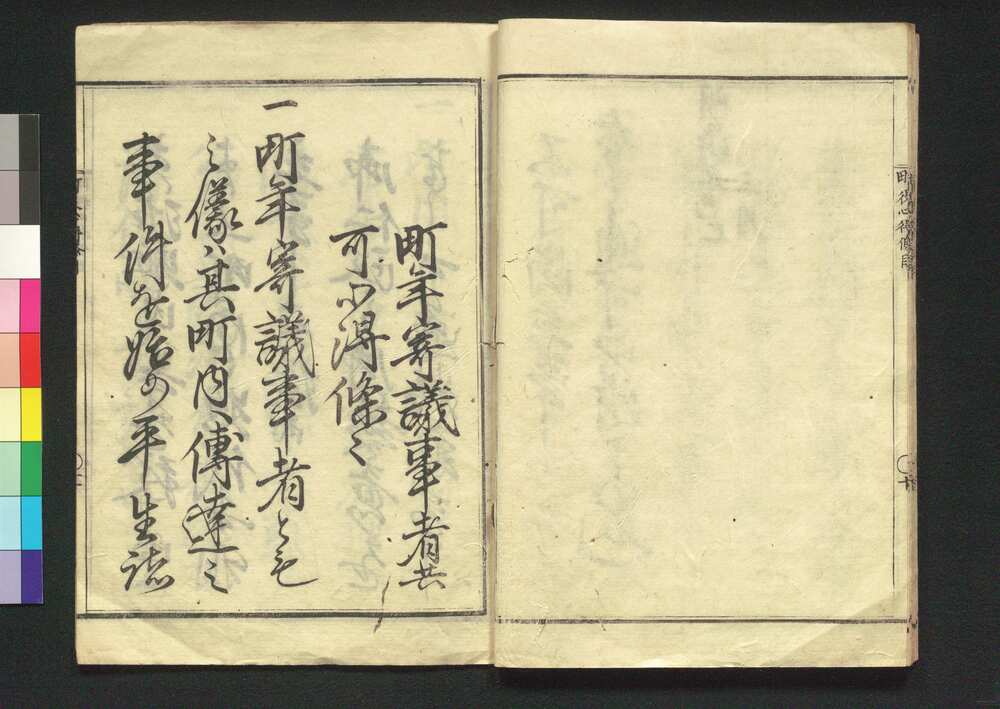 町年寄議事者共
可心得條〻
一町年寄議事者とも
之儀ハ其町内ヘ傳達之
事件を始め平生諸
町役心得條目